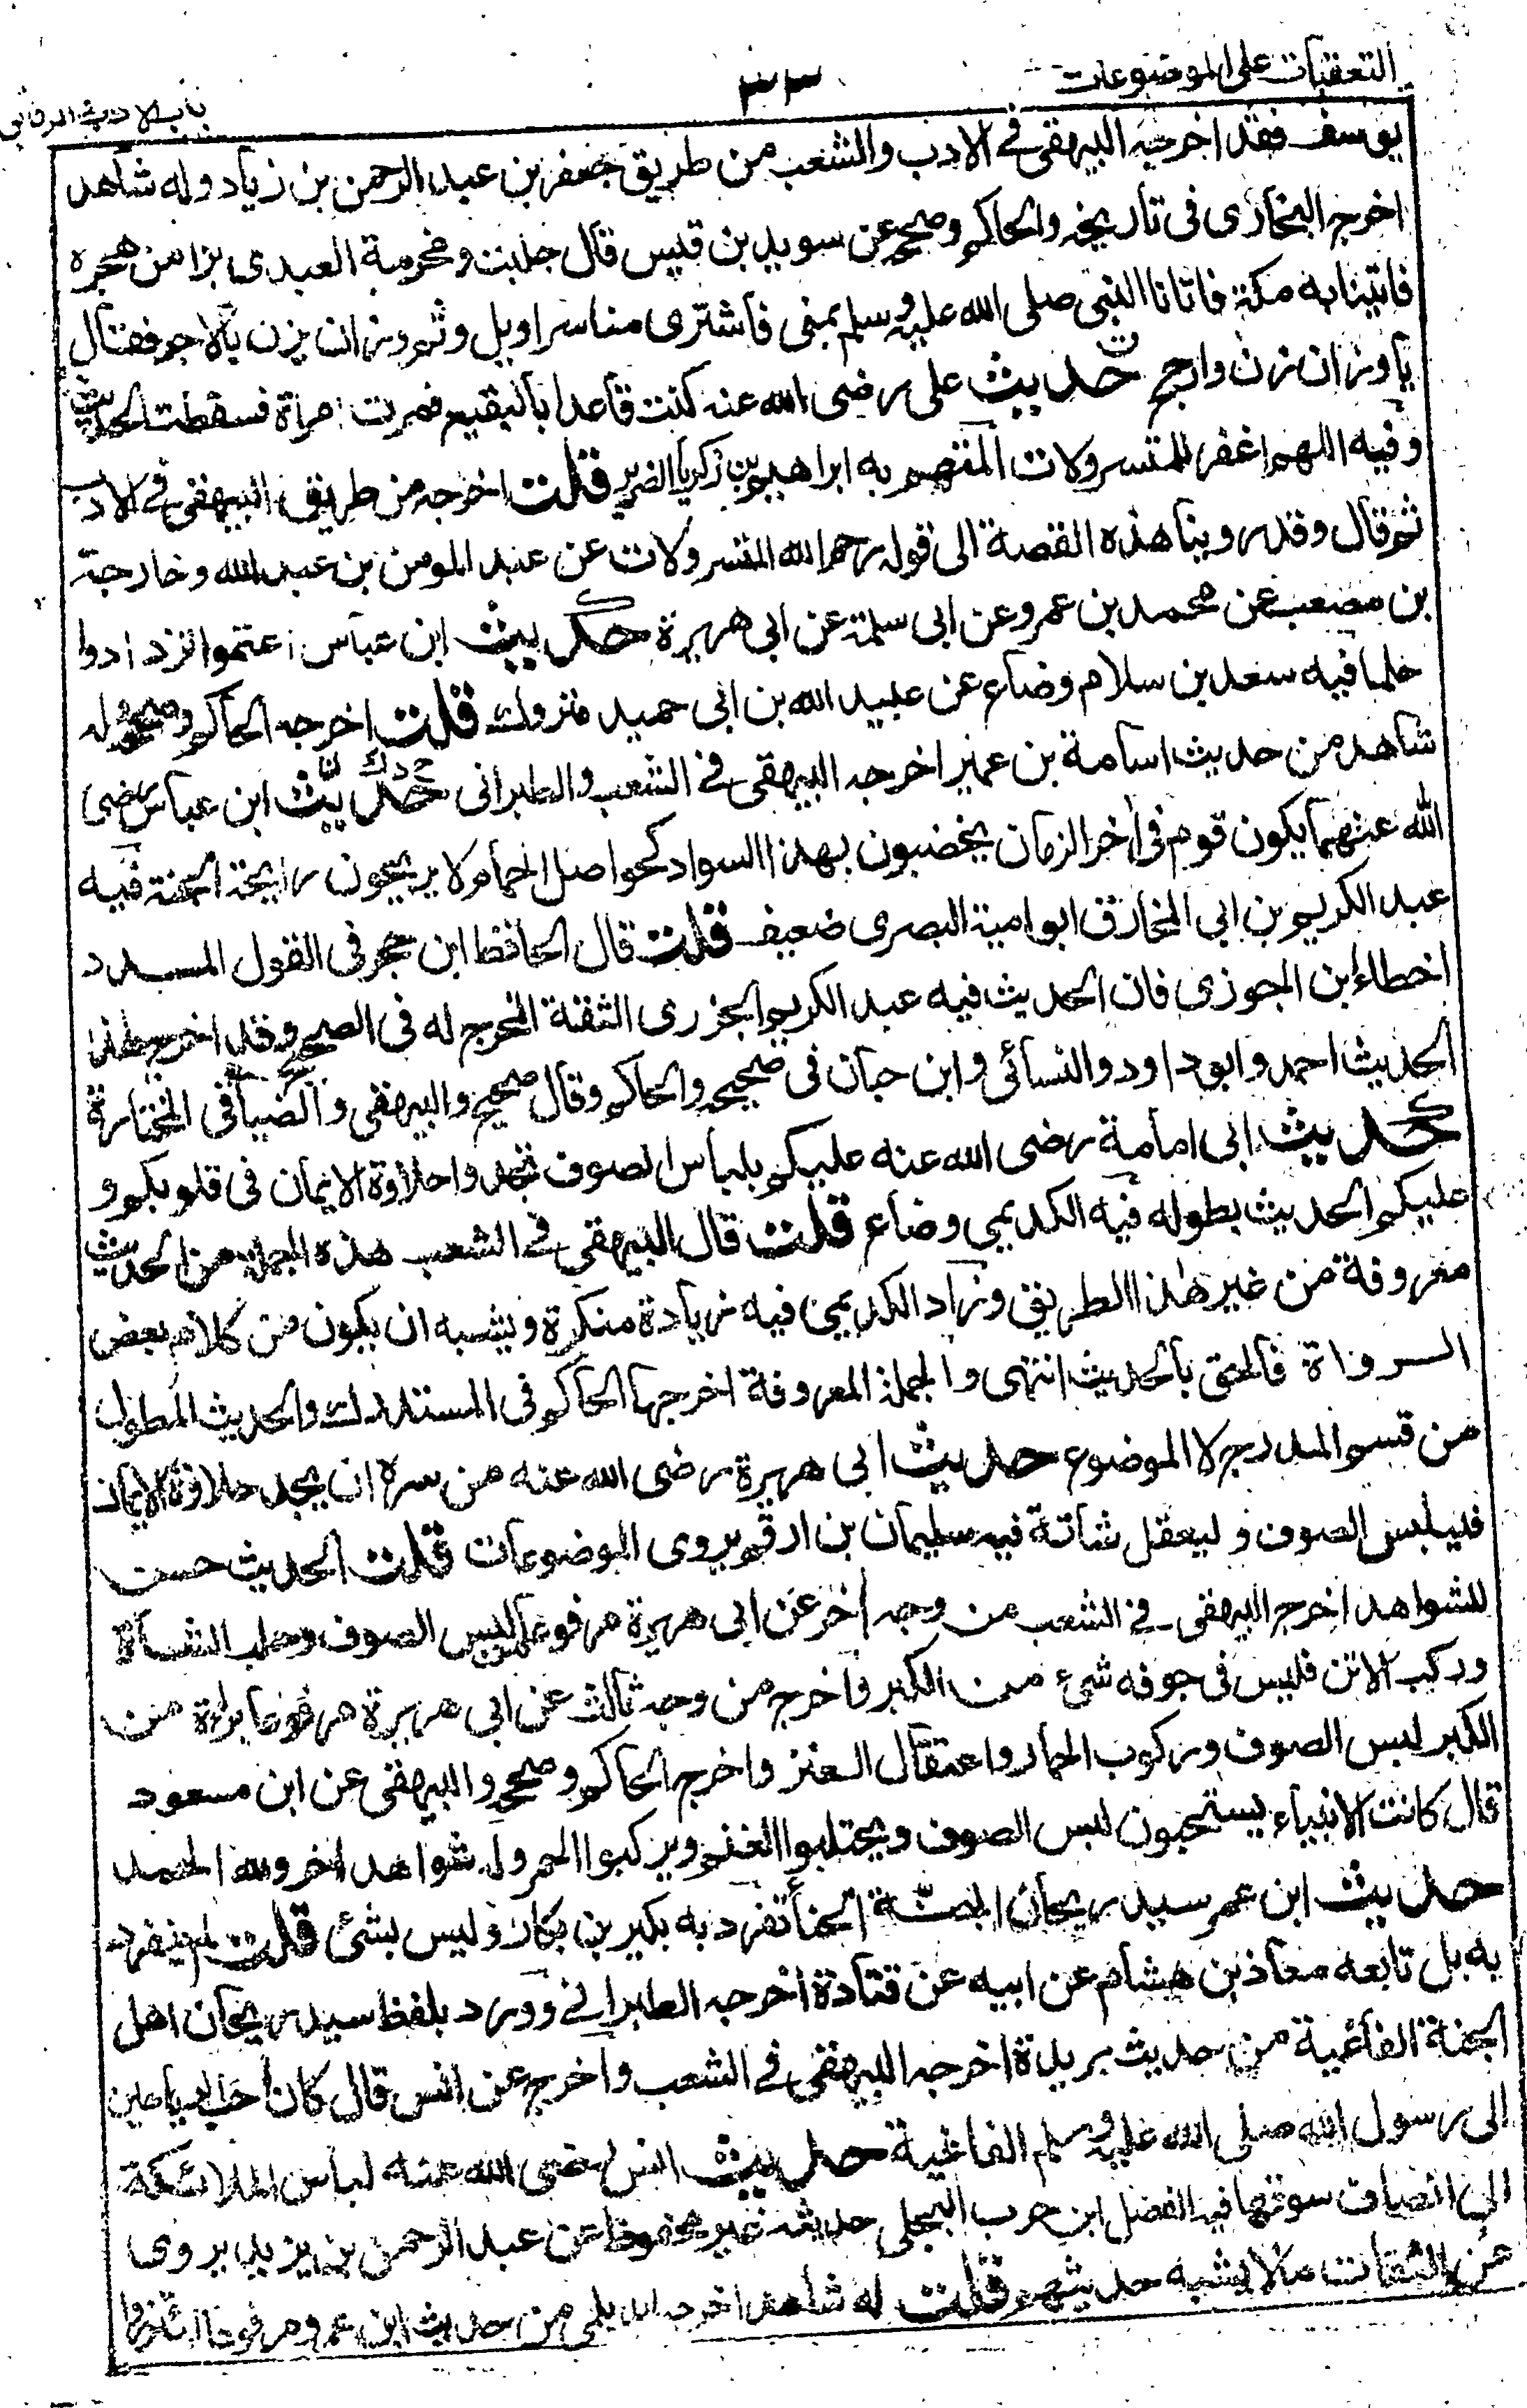 التعقبات على الموضوعات
٣٣
باب الادب والرقائق
يوسف فقد اخرجه البيهقى فے الادب والشعب من طريق جعفر بن عبد الرحمن بن زياد وله شاهد
اخرجه البخارى فى تاريخه والحاكم وصححه عن سويد بن قيس قال جلبت ومخرمة العبدى بزا من هجر
فاتينا به مكة فاتانا النبى صلى الله عليه وسلم بمنى فاشترى منا سراويل وثم وزان يزن بالاجر فقال
يا وزان زن وارجح حديث على رضى الله عنه كنت قاعدا بالبقيع فمرت امراة فسقطت الحديث
وفيه اللهم اغفر للمتسرولات المتهم به ابراهيم بن زكريا الضرير قلت اخرجه من طريق البيهقى فے الادب
ثم قال وقد روينا هذه القصة الى قوله رحم الله المتسرولات عن عبد المومن بن عبد الله وخارجة
بن مصعب عن محمد بن عمرو عن ابى سلمة عن ابى هريرة حديث ابن عباس اعتموا تزدادوا
حلما فيه سعد بن سلام وضاع عن عبيد الله بن ابى حميد متروك قلت اخرجه الحاكم وصححه وله
شاهد من حديث اسامة بن عمير اخرجه البيهقى فے الشعب والطبرانى حديث ابن عباس رضى
الله عنهما يكون قوم فى اخر الزمان يخضبون بهذا السواد كحواصل الحمام لا يريحون رائحة الجنة فيه
عبد الكريم بن ابى المخارق ابو امية البصرى ضعيف قلت قال الحافظ ابن حجر فى القول المسدد
اخطاء ابن الجوزى فان الحديث فيه عبد الكريم الجزرى الثقة المخرج له فى الصحيح وقد اخرج هذا
الحديث احمد وابو داود والنسائى وابن حبان فى صحيحه والحاكم وقال صحيح والبيهقى والضيا فى المختارة
حديث ابى امامة رضى الله عنه عليكم بلباس الصوف تجدوا حلاوة الايمان فى قلوبكم و
عليكم الحديث بطوله فيه الكديمى وضاع قلت قال البيهقى فے الشعب هذه الجملة من الحديث
معروفة من غير هذا الطريق وزاد الكديمى فيه زيادة منكرة ويشبه ان يكون من كلام بعض
الــرواة فالحق بالحديث انتهى والجملة المعروفة اخرجها الحاكم فى المستدرك والحديث المطول
من قسم المدرج لا الموضوع حديث ابى هريرة رضى الله عنه من سره ان يجد حلاوة الايمان
فليلبس الصوف وليعقل شاتة فيه سليمان بن ارقم يروى الموضوعات قلت الحديث حسن
للشواهد اخرج البيهقى فے الشعب من وجه اخر عن ابى هريرة مرفوعا من لبس الصوف وحلب الشاة
وركب الاتن فليس فى جوفه شىء من الكبر واخرج من وجه ثالث عن ابى هريرة مرفوعا براءة من
الكبر لبس الصوف وركوب الحمار واعتقال العنز واخرج الحاكم وصححه والبيهقى عن ابن مسعود
قال كانت الانبياء يستحبون لبس الصوف ويحتلبوا الغنم ويركبوا الحمر وله شواهد اخر ولله الحمد
حديث ابن عمر سيد ريحان الجنــة الحنا تفرد به بكير بن بكار وليس بشئ قلت لم ينفرد
به بل تابعه معاذ بن هشام عن ابيه عن قتادة اخرجه الطبرانے وورد بلفظ سيد ريحان اهل
الجنة الفاغية من حديث بريدة اخرجه البيهقى فے الشعب واخرج عن انس قال كان احب الرياحين
الى رسول الله صلى الله عليه وسلم الفاغية حديث انس رضى الله عنه لباس الملائكة
الى انصاف سوقها فيه الفضل ابن حرب البجلى حديثه غير محفوظ عن عبد الرحمن بن يزيد يروى
عن الثقات مالا يشبه حديثهم قلت له شاهد اخرجه الديلمى من حديث ابن عمرو مرفوعا ائتزروا